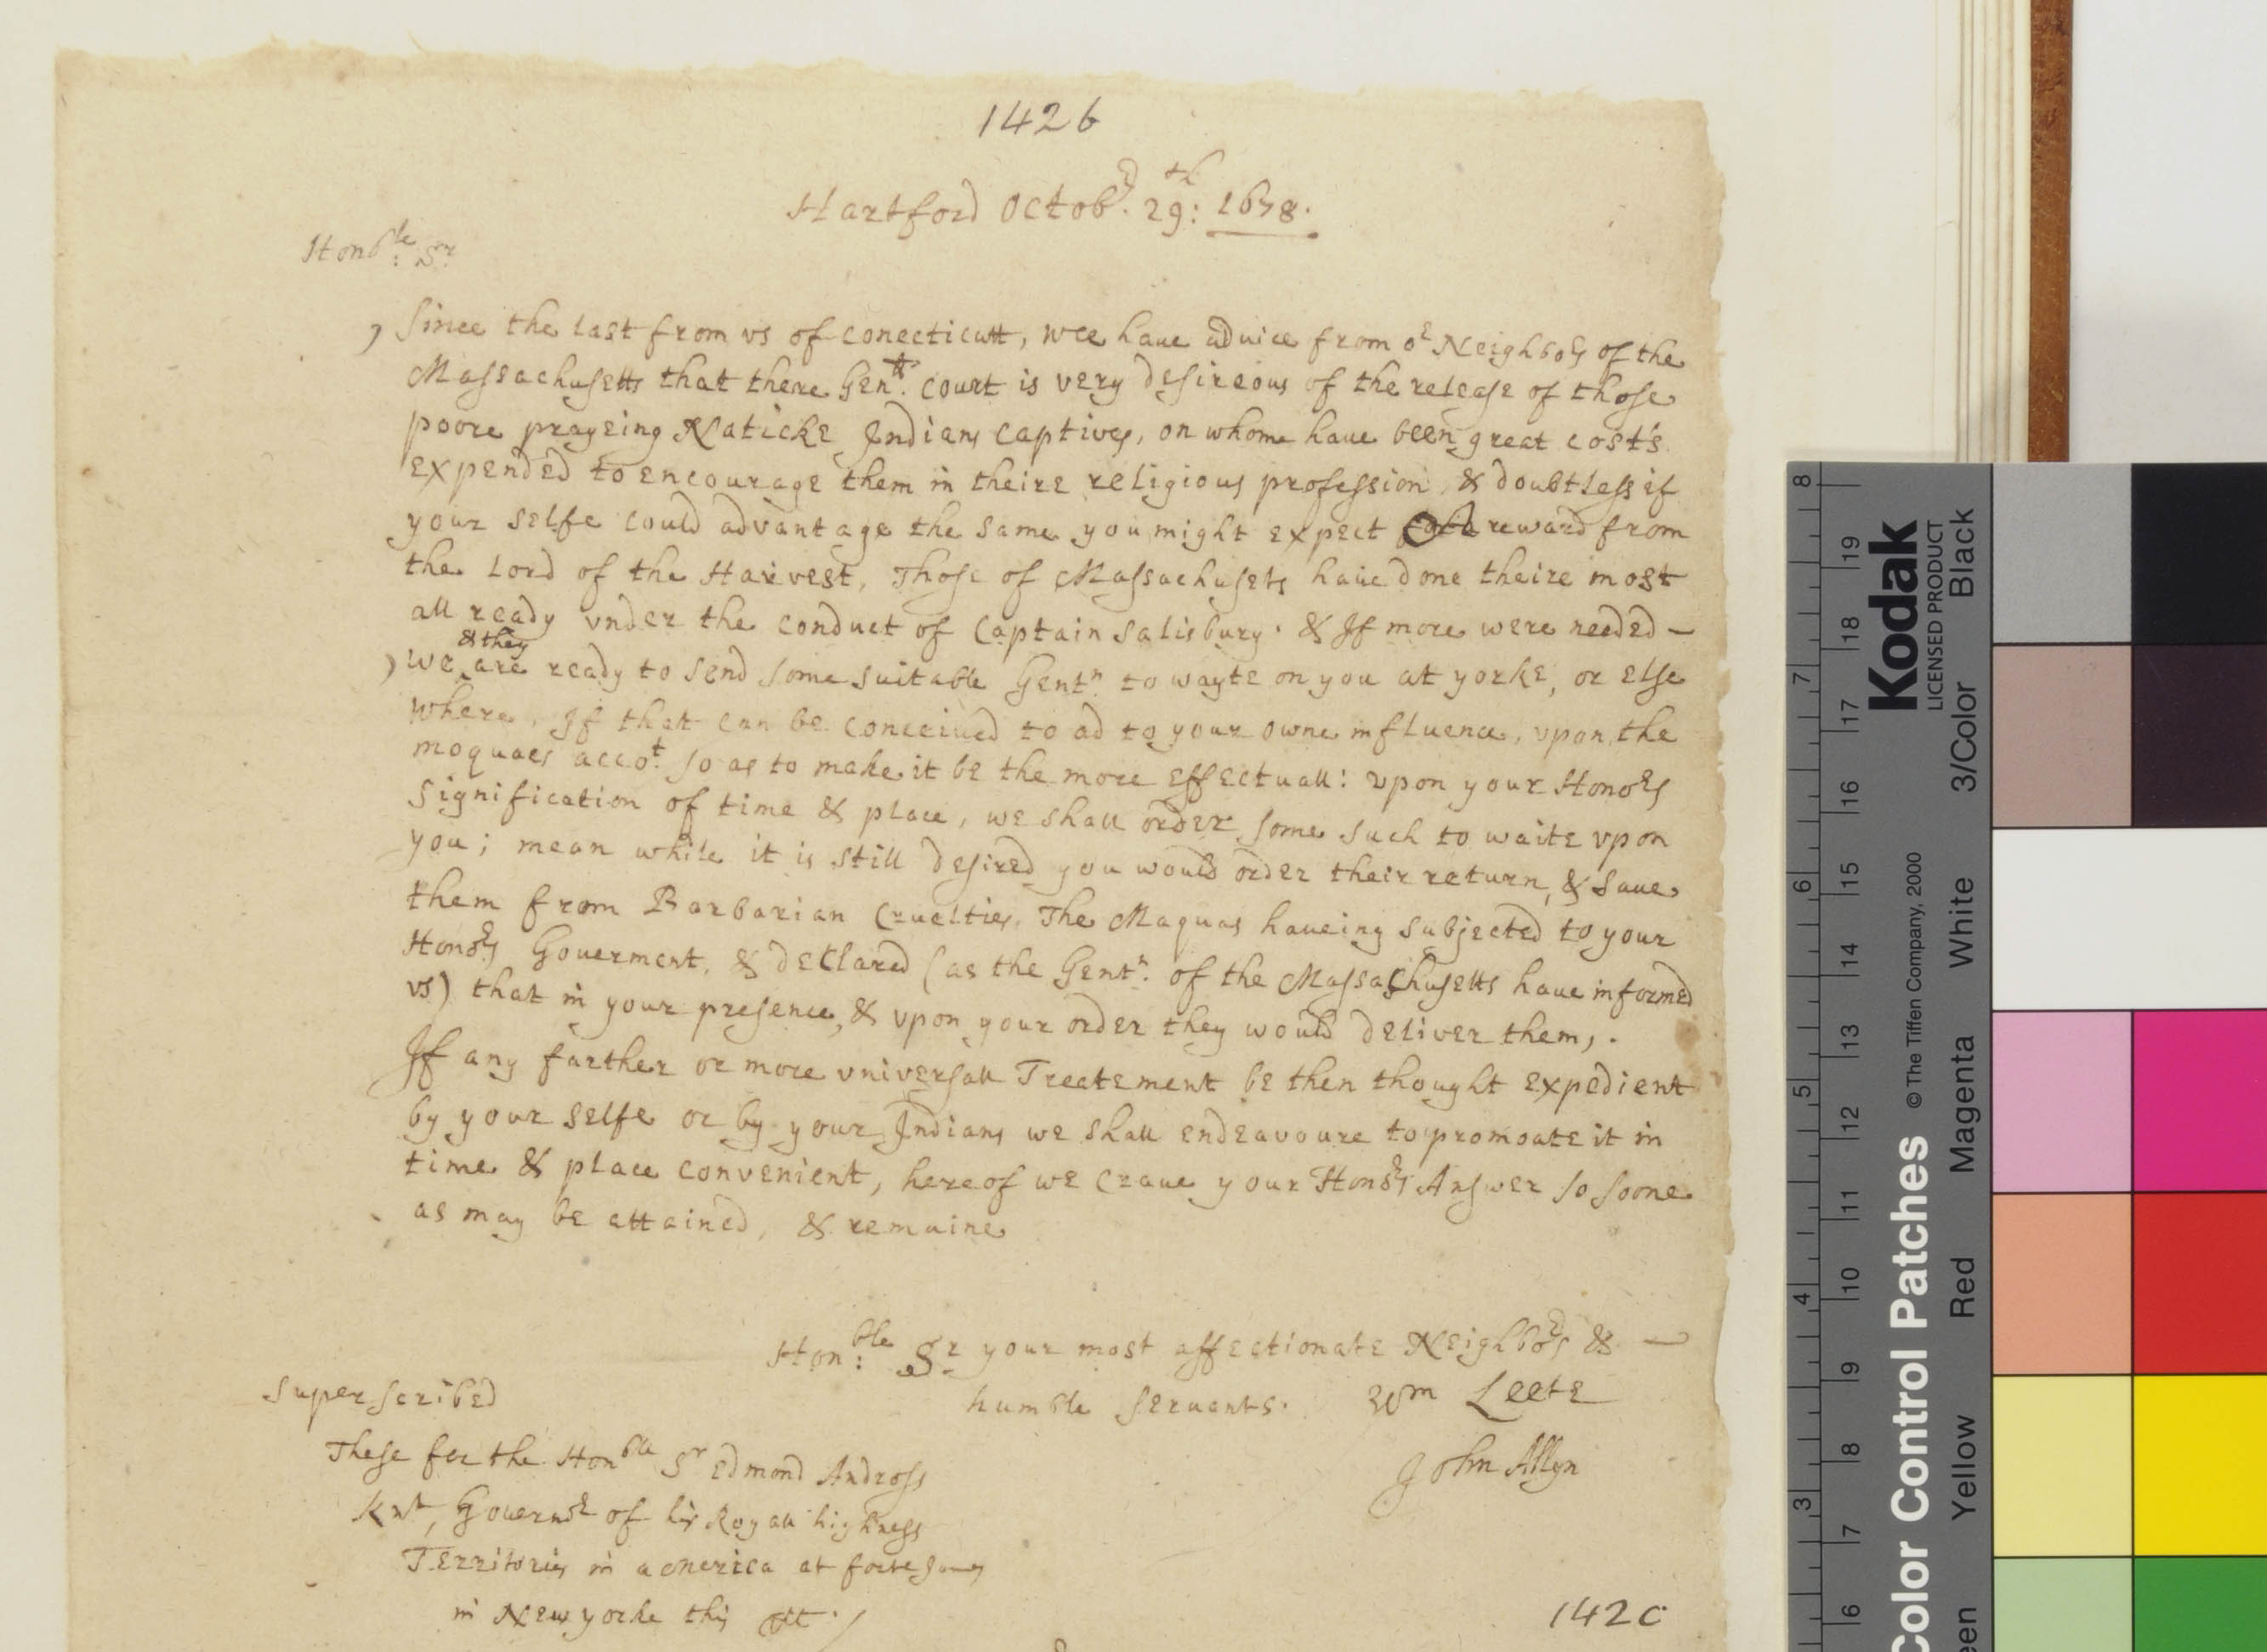 142b
Hartford Octobr. 29th: 1678.
Honble: Sr.
, Since the last from vs of conecticutt, wee haue aduice from or Neighbors of the
Massachusetts that there Genll. Court is very desireous of the release of those
poore prayeing Naticke Indians captives, on whome haue been great cost's
expended to encourage them in theire religious profession, & doubtless if
your selfe could advantage the same you might expect reward from
the Lord of the Harvest, Those of Massachusets haue done theire most
all ready vnder the conduct of Captain Salisbury. & If more were needed –
& they
, we are ready to send some suitable Gentn to wayte on you at yorke, or else
where, If that can be conceiued to ad to your owne influence, vpon the
moquaes accot. so as to make it be the more effectuall: vpon your Honors
signification of time & place, we shall order some such to waite vpon
you; mean while it is still desired you would order their return, & saue
them from Barbarian Cruelties, The Maquas haueing subjected to your
Honors Gouerment, & declared (as the Gentn. of the Massachusetts haue informed
vs) that in your presence, & vpon your order they would deliver them, .
If any farther or more vniversall Treatement be then thought expedient
by your selfe or by your Indians we shall endeavoure to promoate it in
time & place convenient, hereof we craue your Honors Answer so soone
as may be attained, & remaine
Honble: Sr. your most affectionate Neighbors & —
humble servants. Wm Leete
John Allyn
Superscribed
These for the Honble Sr Edmond Andross
Knt, Governor of his Royall highness
Territories in america at forte James
in New yorke this
142c
8
7
6
5
4
3
19
18
17
16
15
14
13
12
11
10
9
8
7
6
Kodak
LICENSED PRODUCT
© The Tiffen Company, 2000
Color Control Patches
Black
3/Color
White
Magenta
Red
Yellow